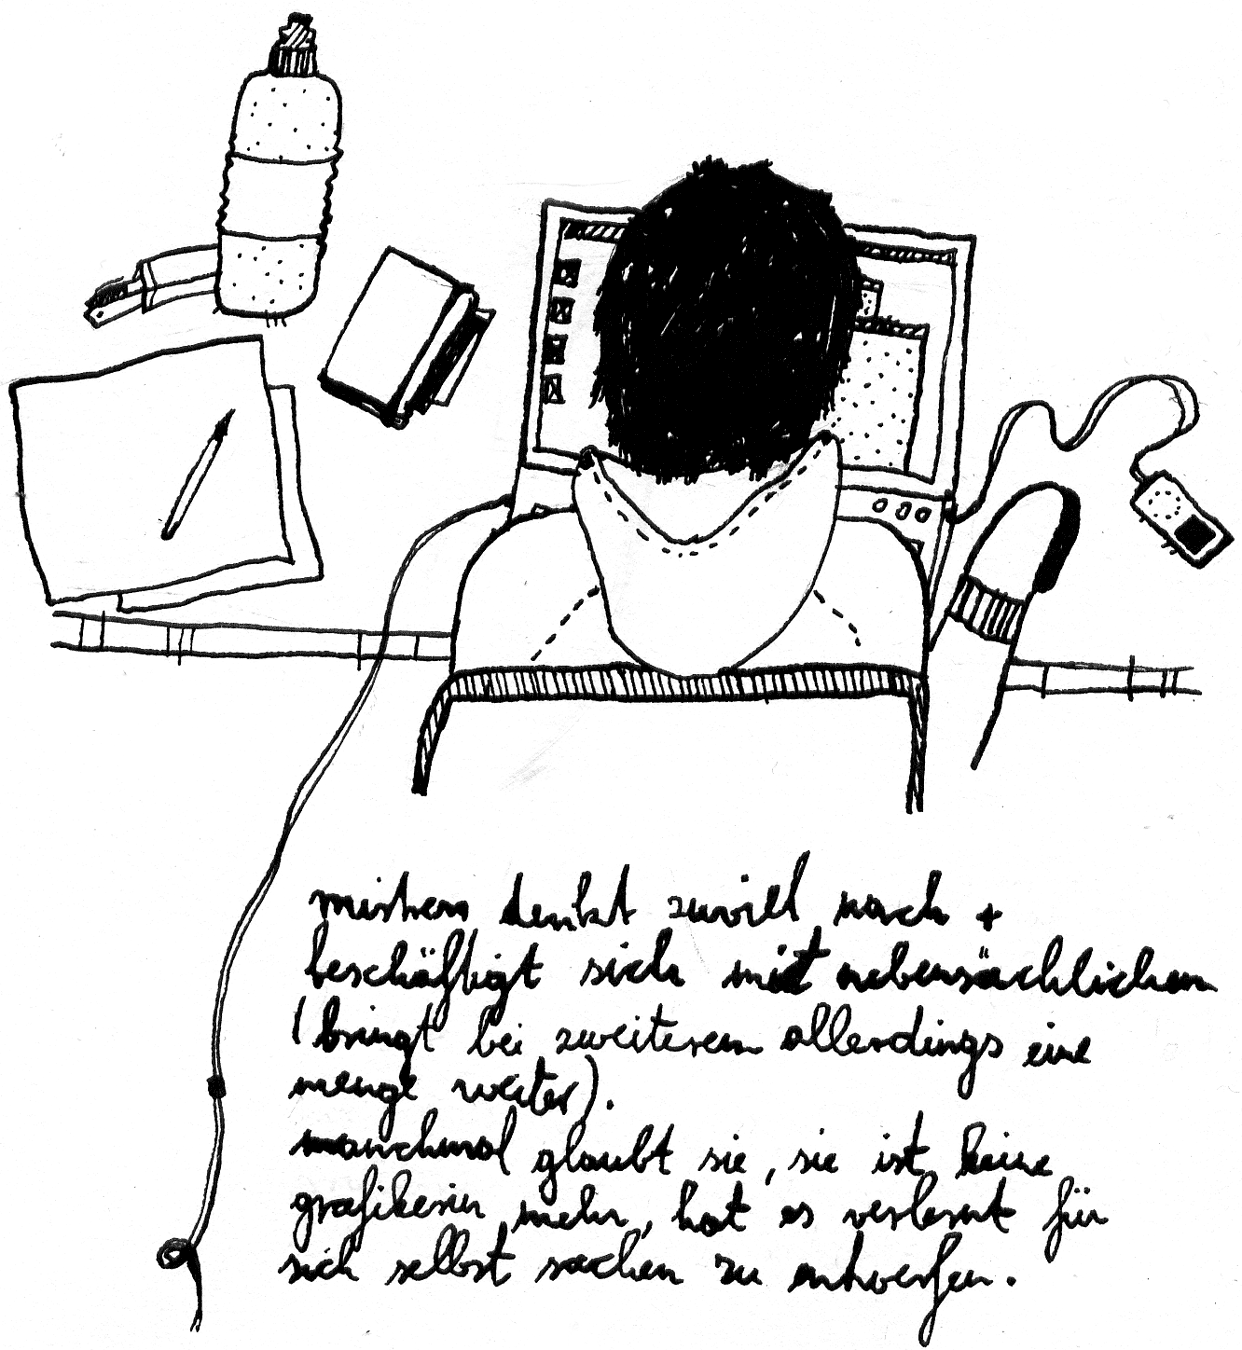 denkt zuviel nach +
beschäftigt sich mit nebensächlichem
(bringt bei zweiterem allerdings eine
menge weiter).
manchmal glaubt sie, sie ist keine
grafikerin mehr, hat es verlernt für
sich selbst sachen zu entwerfen.